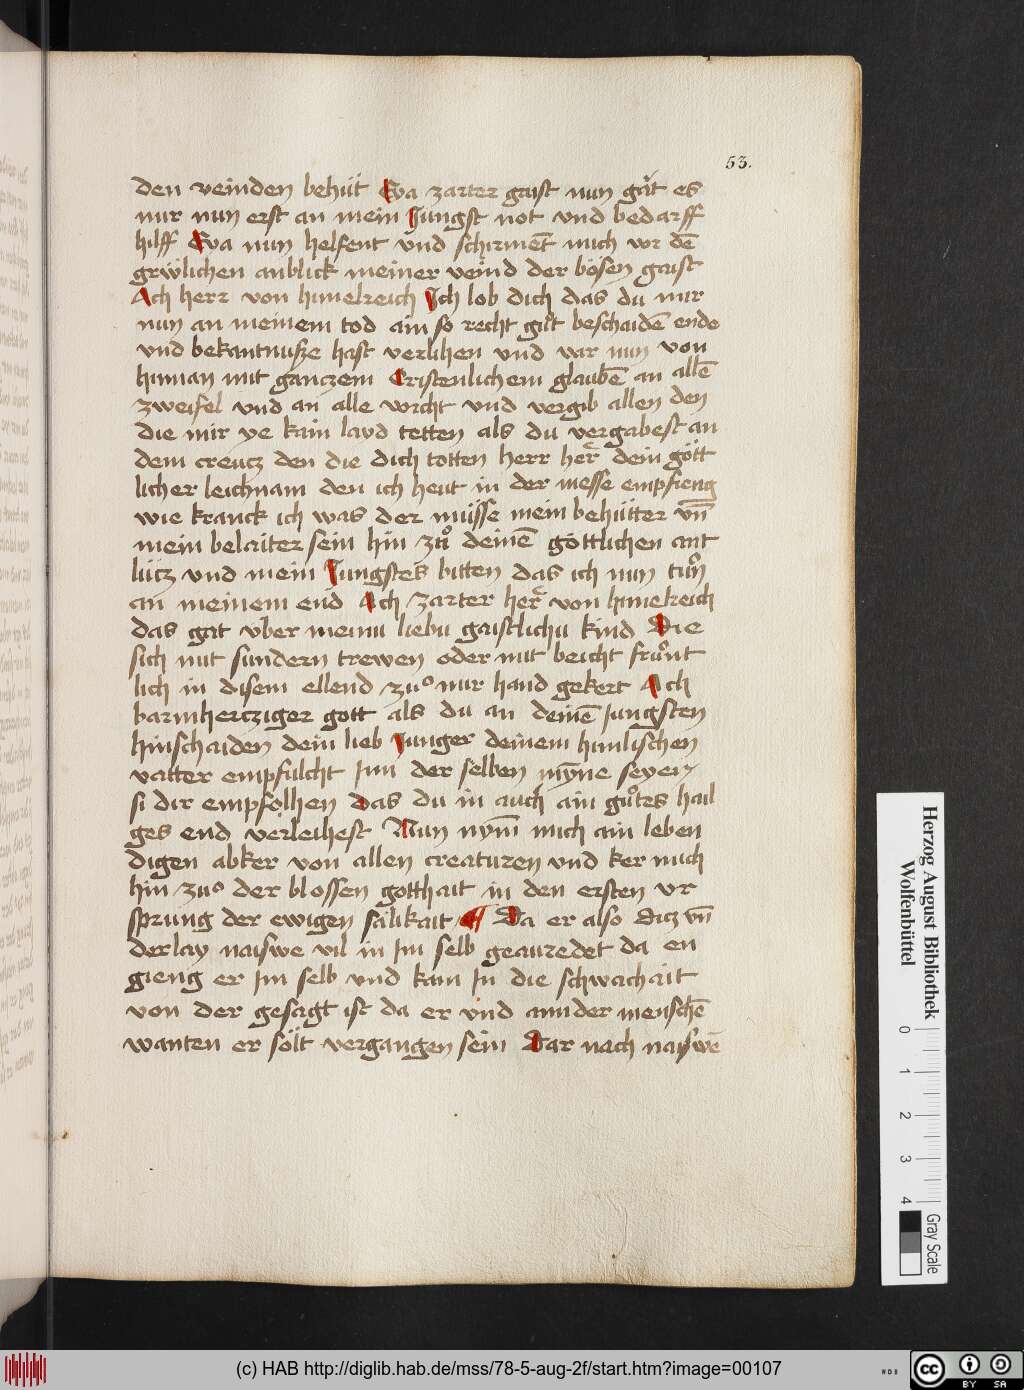 53.
den veinden behüt Eva zarter gaist nun gůt es
mir nun erst an mein Jungst not vnd bedarff
hilff Eva nun helfent vnd schirment̄ mich vor dē
grwlichen anblick meiner veind der bösen gaist
Ach herr von himelreich Ich lob dich das du mir
nun an meinem tod ain so recht gůt beschaidē ende
vnd bekantnusze hast verlihen vnd var nun von
hinnan mit ganczem Cristenlichem glaubē an allē
zweifel vnd an alle vorcht vnd vergib allen den
die mir ye kain layd tetten als du vergabest an
dem creutz den die dich totten herr her̃ dein gött
licher leichnam den ich heut in der messe empfieng
wie kranck ich was der müsse mein behütter vn̄
mein belaiter sein hin zů deinē göttlichen ant
lütz vnd mein Jungstes bitten das ich nun tůn
an meinem end Ach zarter her̃ von himelreich
das gat vber meinu liebu gaistlichu kind Die
sich mit sundern trewen oder mit beicht frůnt
lich in disem ellend zuo mir hand gekert Ach
barmhercziger gott als du an deinē jungsten
hinschaiden dein lieb Junger deinem himlischen
vatter empfulcht Inn der selben myne seyen
si dir empfolhen das du in auch ain gůtes hail
ges end verleihest Nun nym̄ mich ain leben
digen abker von allen creaturen vnd ker mich
hin zuo der blossen gotthait in den ersten vr
sprung der ewigen sälikait ¶ Da er also ditz vn̄
derlay naiswe vil in im selb geauredet da en
gieng er Im selb vnd kam In die schwachait
von der gesagt ist da er vnd annder menschē
wanten er sölt vergangen sein Dar nach naiswē
Herzog August Bibliothek
Wolfenbüttel
0 1 2 3 4
Gray Scale
(c) HAB http://diglib.hab.de/mss/78-5-aug-2f/start.htm?image=00107
WDB
cc BY SA